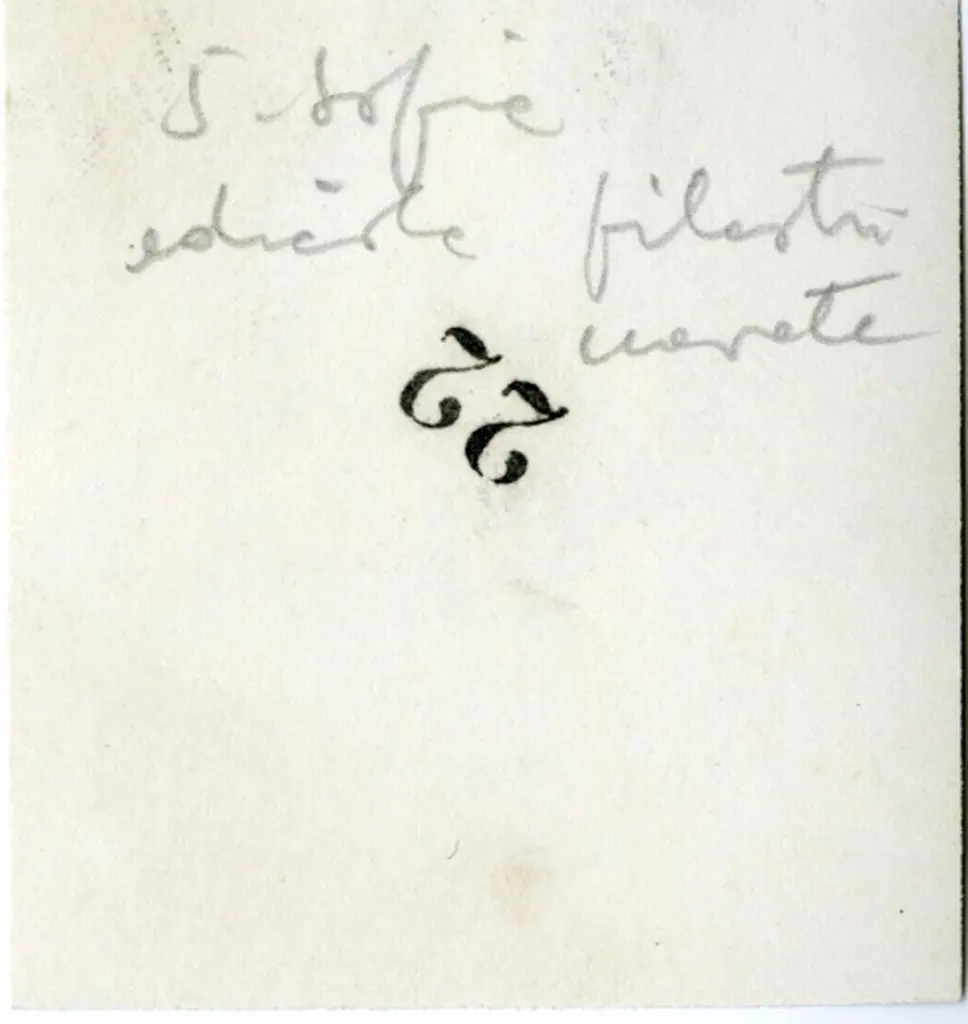 S. Sofia
edicola pilastri
murate
22